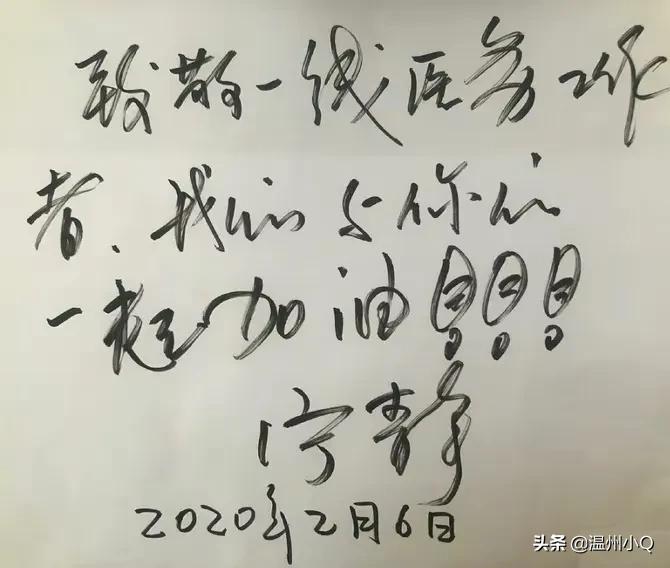 致敬一线医务工作
者、我们与你们
一起加油!!!
宁静
2020年2月6日
头条 @温州小Q